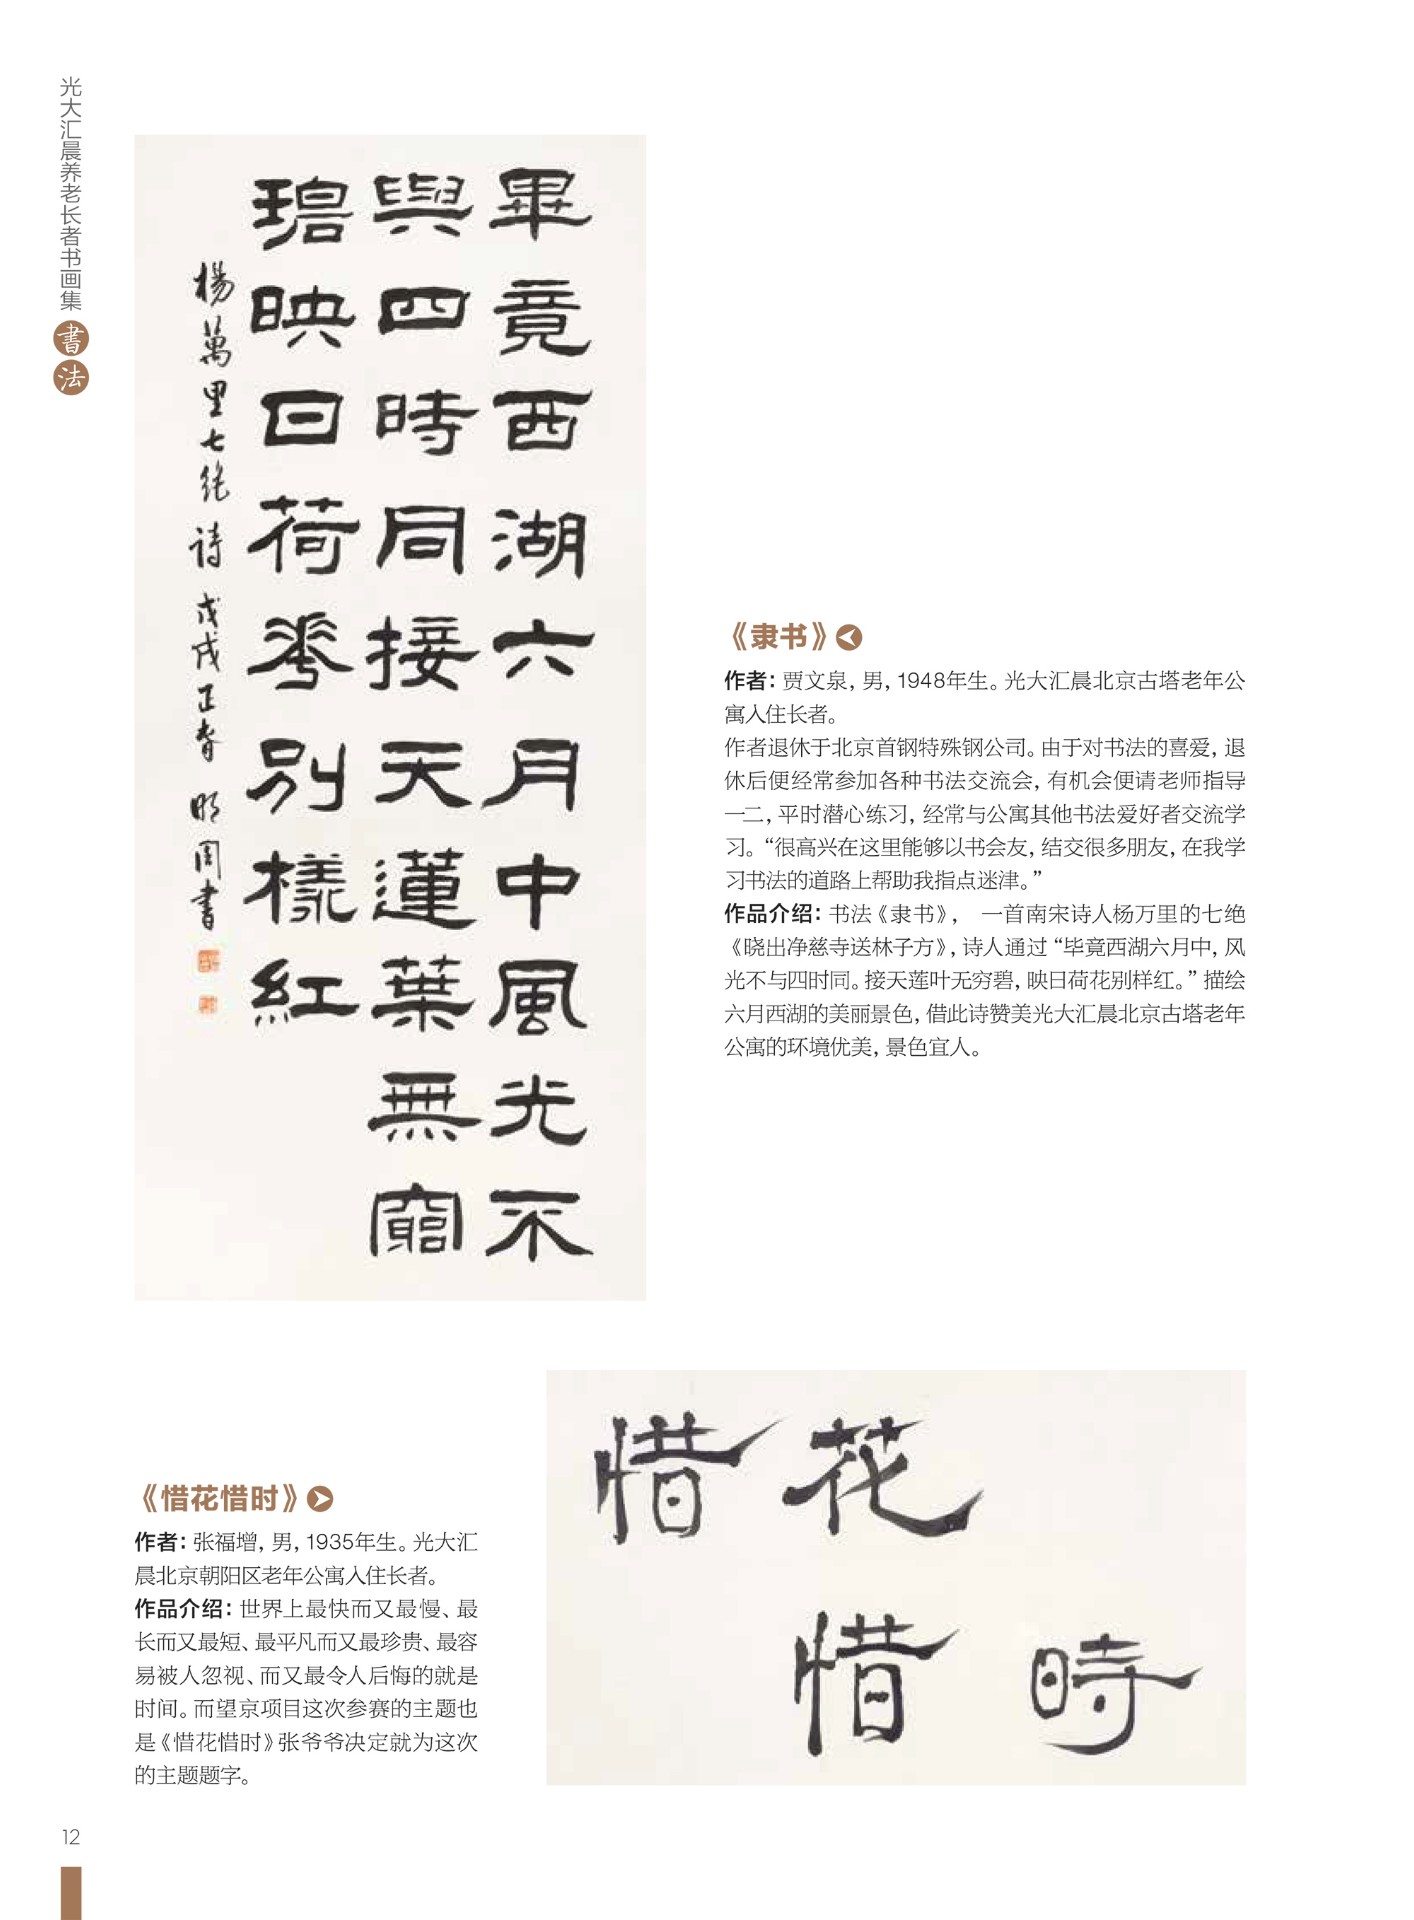 光大汇晨养老长者书画集
書法
畢竟西湖六月中風光不
與四時同接天蓮葉無窮
碧映日荷花別樣紅
楊萬里七絕詩 戊戌正春 明周書
《隶书》
作者：贾文泉，男，1948年生。光大汇晨北京古塔老年公
寓入住长者。
作者退休于北京首钢特殊钢公司。由于对书法的喜爱，退
休后便经常参加各种书法交流会，有机会便请老师指导
一二，平时潜心练习，经常与公寓其他书法爱好者交流学
习。“很高兴在这里能够以书会友，结交很多朋友，在我学
习书法的道路上帮助我指点迷津。”
作品介绍：书法《隶书》， 一首南宋诗人杨万里的七绝
《晓出净慈寺送林子方》，诗人通过“毕竟西湖六月中，风
光不与四时同。接天莲叶无穷碧，映日荷花别样红。”描绘
六月西湖的美丽景色，借此诗赞美光大汇晨北京古塔老年
公寓的环境优美，景色宜人。
惜花
惜時
《惜花惜时》
作者：张福增，男，1935年生。光大汇
晨北京朝阳区老年公寓入住长者。
作品介绍：世界上最快而又最慢、最
长而又最短、最平凡而又最珍贵、最容
易被人忽视、而又最令人后悔的就是
时间。而望京项目这次参赛的主题也
是《惜花惜时》张爷爷决定就为这次
的主题题字。
12